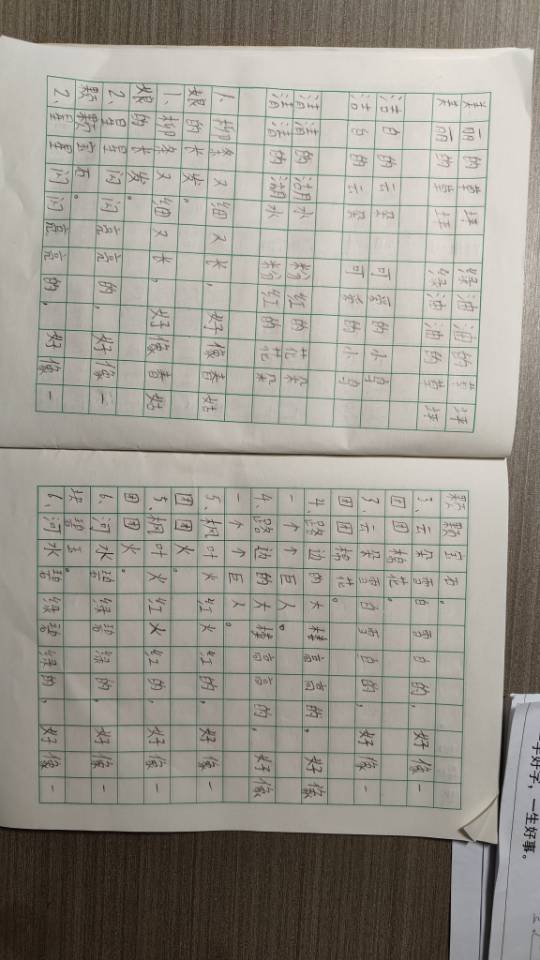 美丽的草坪 绿油油的草坪
美丽的草坪 绿油油的草坪
洁白的云朵 可爱的小鸟
洁白的云朵 可爱的小鸟
清清的湖水 粉红的花朵
清清的湖水 粉红的花朵
1、柳条又细又长，好像春姑
娘的长发。
1、柳条又细又长，好像春姑
娘的长发。
2、星星闪闪亮亮的，好像一
颗颗宝石。
2、星星闪闪亮亮的，好像一
颗颗宝石。
3、云朵雪白雪白的，好像一
团团棉花。
3、云朵雪白雪白的，好像一
团团棉花。
4、路边的大楼高高的，好像
一个个巨人。
4、路边的大楼高高的，好像
一个个巨人。
5、枫叶火红火红的，好像一
团团火。
5、枫叶火红火红的，好像一
团团火。
6、河水碧绿碧绿的，好像一
块碧玉。
6、河水碧绿碧绿的，好像一
好字，一生好事。